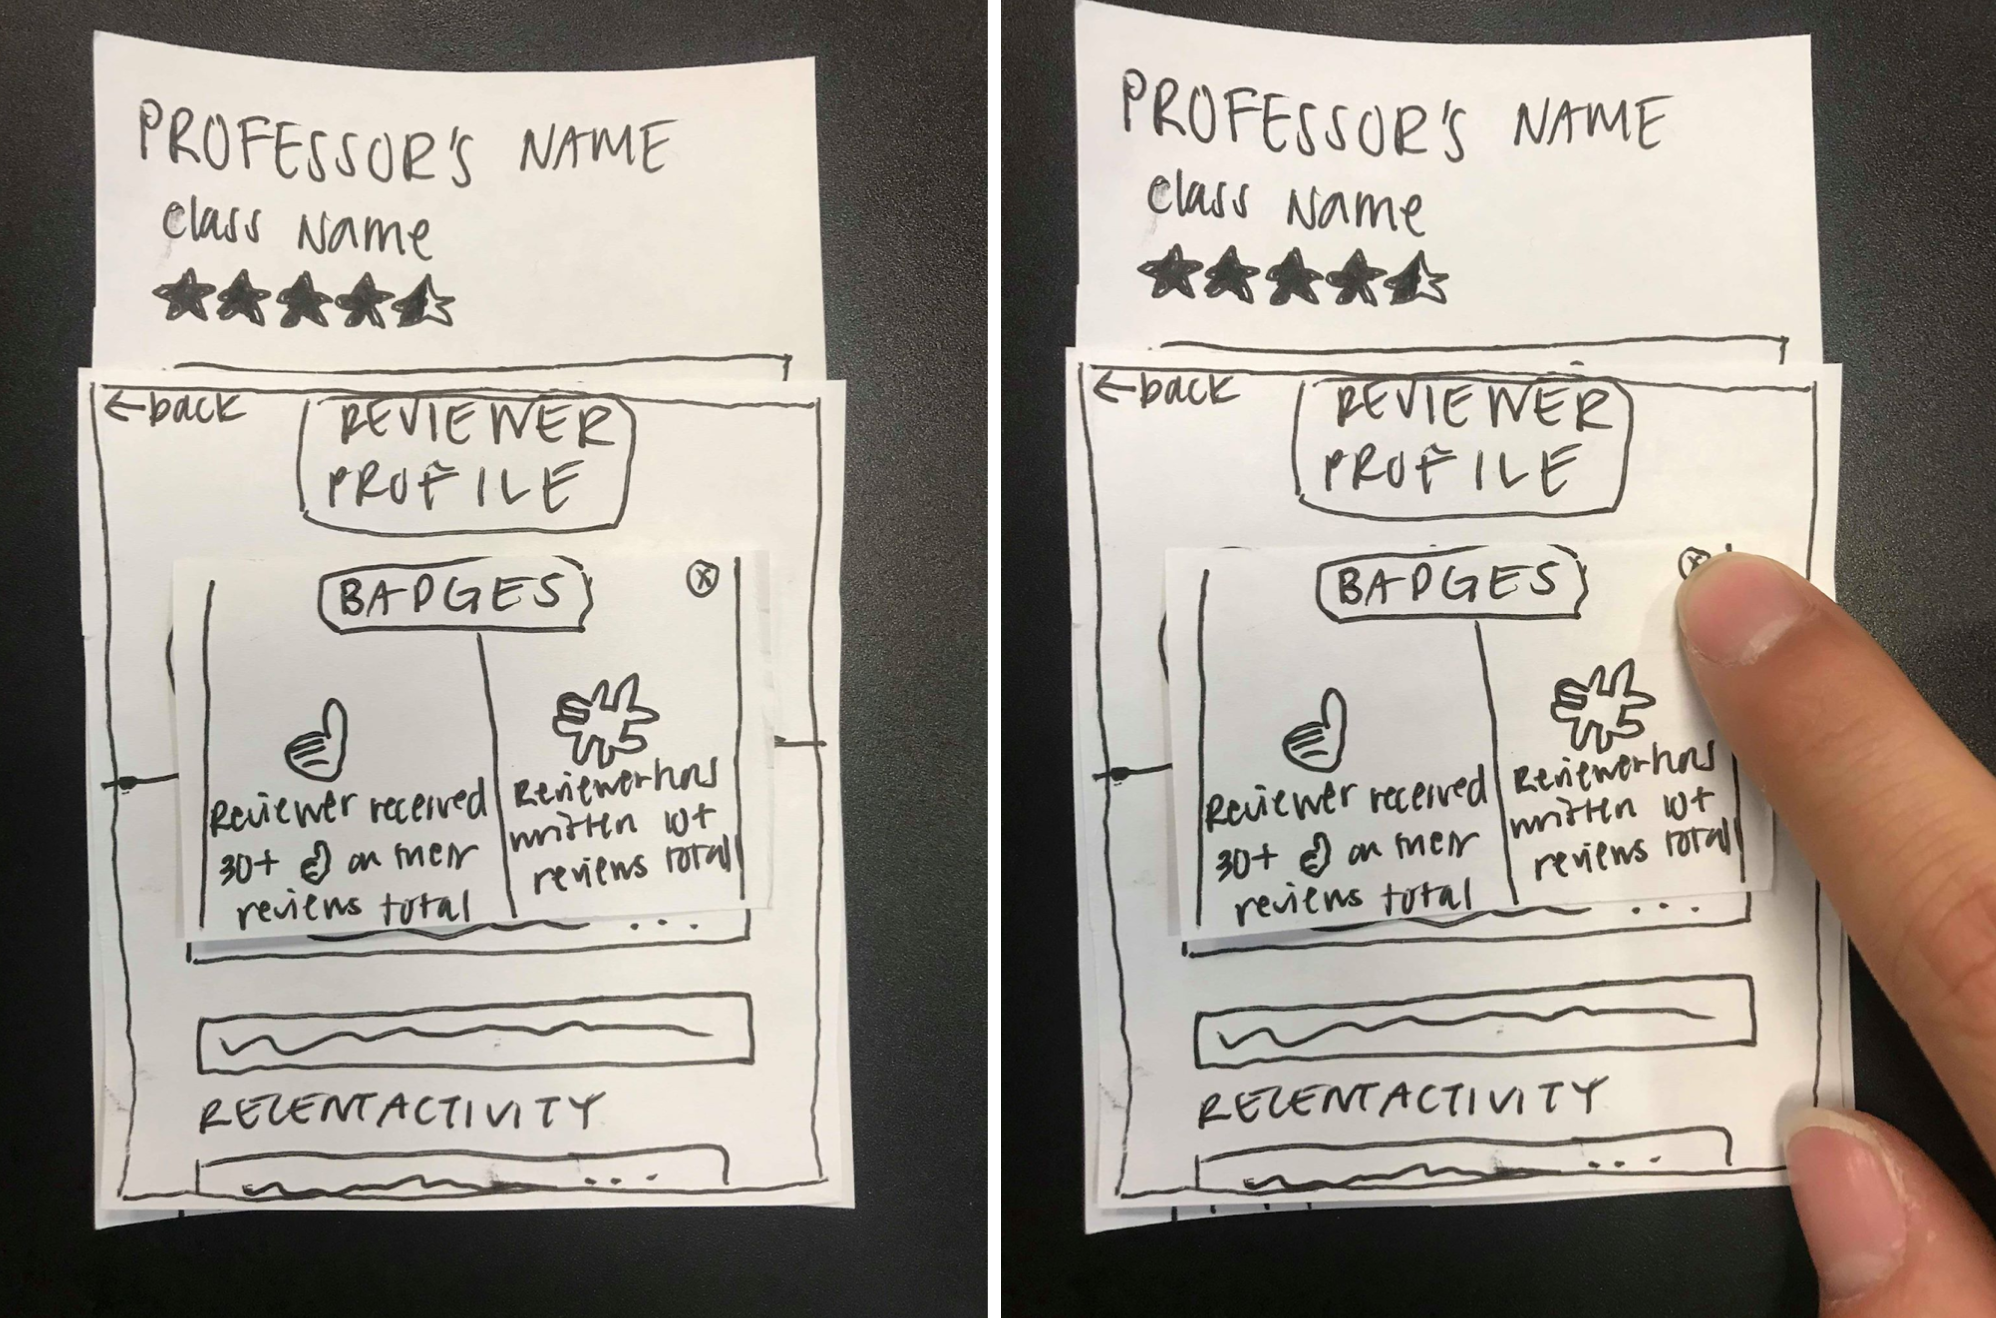 PROFESSOR'S NAME
Class Name
←back
REVIEWER
PROFILE
BADGES
X
Reviewer received
30+ on their
reviews total
Reviewer has
written 10+
reviews total
...
RECENT ACTIVITY
...
PROFESSOR'S NAME
Class Name
←back
REVIEWER
PROFILE
BADGES
X
Reviewer received
30+ on their
reviews total
Reviewer has
written 10+
reviews total
...
RECENT ACTIVITY
...